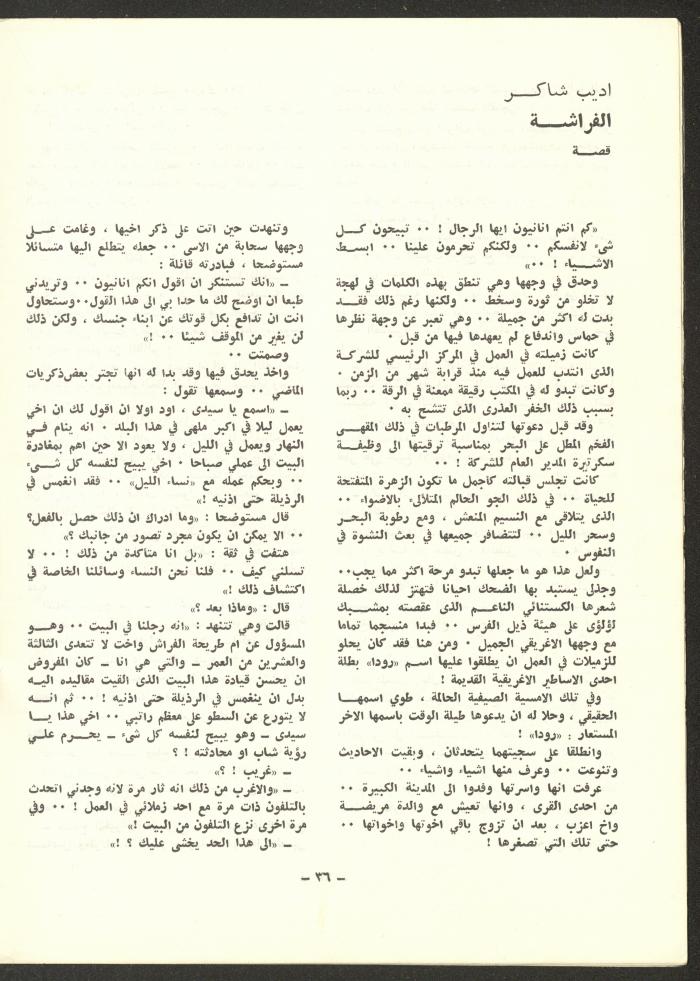 اديب شاكــر
الفراشــة
قصــة
«كم انتم انانيون ايها الرجال ! ٠٠ تبيحون كــل
شىء لانفسكم ٠٠ ولكنكم تحرمون علينا ٠٠ ابســط
الاشــياء ! ٠٠»
وحدق في وجهها وهي تنطق بهذه الكلمات في لهجة
لا تخلو من ثورة وسخط ٠٠ ولكنها رغم ذلك فقــد
بدت له اكثر من جميلة ٠٠ وهي تعبر عن وجهة نظرها
في حماس واندفاع لم يعهدها فيها من قبل ٠
كانت زميلته في العمل في المركز الرئيسي للشركة
الذى انتدب للعمل فيه منذ قرابة شهر من الزمن ٠
وكانت تبدو له في المكتب رقيقة ممعنة في الرقة ٠٠ ربما
بسبب ذلك الخفر العذرى الذى تتشح به ٠
وقد قبل دعوتها لتناول المرطبات في ذلك المقهــى
الفخم المطل على البحر بمناسبة ترقيتها الى وظيفــة
سكرتيرة المدير العام للشركة ! ٠٠
كانت تجلس قبالته كاجمل ما تكون الزهرة المتفتحة
للحياة ٠٠ في ذلك الجو الحالم المتلألىء بالاضواء ٠٠
الذى يتلاقى مع النسيم المنعش ، ومع رطوبة البحـر
وسحر الليل ٠٠ لتتضافر جميعها في بعث النشوة في
النفوس ٠
ولعل هذا هو ما جعلها تبدو مرحة اكثر مما يجب٠٠
وجذلى يستبد بها الضحك احيانا فتهتز لذلك خصلة
شعرها الكستنائي الناعــم الذى عقصته بمشــبك
لؤلؤى على هيئة ذيل الفرس ٠٠ فبدا منسجما تماما
مع وجهها الاغريقي الجميل ٠ ومن هنا فقد كان يحلو
للزميلات في العمل ان يطلقوا عليها اسـم «رودا» بطلة
احدى الاساطير الاغريقية القديمة !
وفي تلك الامسية الصيفية الحالمة ، طوي اسمهـا
الحقيقي ، وحلا له ان يدعوها طيلة الوقت باسمها الاخر
المستعار : «رودا» !
وانطلقا على سجيتهما يتحدثان ، وبقيت الاحاديث
وتنوعت ٠٠ وعرف منها اشياء واشياء ٠٠
عرفت انها واسرتها وفدوا الى المدينة الكبيرة ٠٠
من احدى القرى ، وانها تعيش مع والدة مريضــة
واخ اعزب ، بعد ان تزوج باقي اخوتها واخواتها ٠٠
حتى تلك التي تصغرها !
وتنهدت حين اتت على ذكر اخيها ، وغامت علــى
وجهها سحابة من الاسى ٠٠ جعله يتطلع اليها متسائلا
مستوضحا ، فبادرته قائلة :
ــ «انك تستنكر ان اقول انكم انانيون ٠٠ وتريدني
طبعا ان اوضح لك ما حدا بي الى هذا القول٠٠وستحاول
انت ان تدافع بكل قوتك عن ابناء جنسك ، ولكن ذلك
لن يغير من الموقف شيئا ٠٠ !»
وصمتت ٠٠
واخذ يحدق فيها وقد بدا له انها تجتر بعض ذكريات
الماضي ٠٠ وسمعها تقول :
ــ «اسمع يا سيدى ، اود اولا ان اقول لك ان اخي
يعمل ليلا في اكبر ملهى في هذا البلد ٠ انه ينام فــي
النهار ويعمل في الليل ، ولا يعود الا حين اهم بمغادرة
البيت الى عملي صباحا ٠ اخي يبيح لنفسه كل شــىء
٠٠ وبحكم عمله مع «نساء الليل» ٠٠ فقد انغمس في
الرذيلة حتى اذنيه !»
قال مستوضحا : «وما ادراك ان ذلك حصل بالفعل؟
٠٠ الا يمكن ان يكون مجرد تصور من جانبك ؟»
هتفت في ثقة : «بل انا متأكدة من ذلك ! ٠٠ لا
تسلني كيف ٠٠ فلنا نحن النساء وسائلنا الخاصة في
اكتشاف ذلك !»
قال : «وماذا بعد ؟»
قالت وهي تتنهد : «انه رجلنا في البيت ٠٠ وهــو
المسؤول عن ام طريحة الفراش واخت لا تتعدى الثالثة
والعشرين من العمر ــ والتي هي انا ــ كان المفروض
ان يحسن قيادة هذا البيت الذى القيت مقاليده اليـه
بدل ان ينغمس في الرذيلة حتى اذنيه ! ٠٠ ثم انــه
لا يتورع عن السطو على معظم راتبي ٠٠ اخي هذا يــا
سيدى ــ وهو يبيح لنفسه كل شىء ــ يحــرم علــي
رؤية شاب او محادثته ! ؟
ــ «غريب ! ؟»
ــ «والاغرب من ذلك انه ثار مرة لانه وجدني اتحدث
بالتلفون ذات مرة مع احد زملائي في العمل ! ٠٠ وفي
مرة اخرى نزع التلفون من البيت !»
ــ «الى هذا الحد يخشى عليك ؟ !»
– ٣٦ –